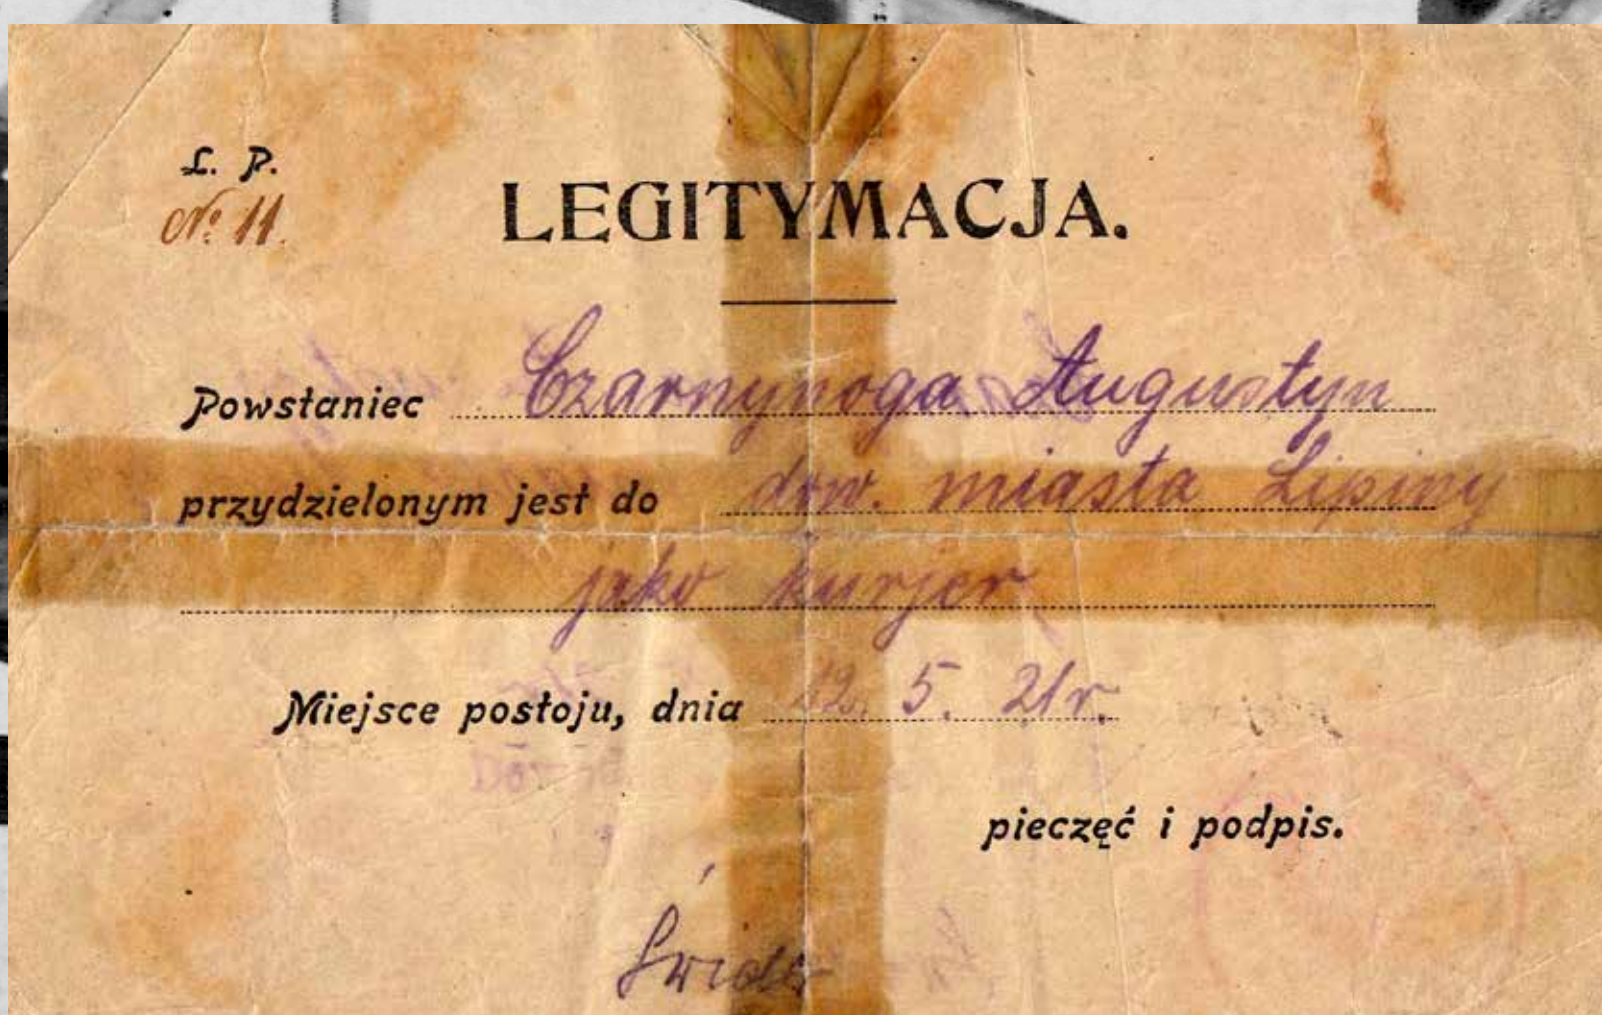 L. P.
No. 11.
LEGITYMACJA.
Powstaniec Czarnynoga Augustyn
przydzielonym jest do dow. miasta Lipiny
jako kurjer
Miejsce postoju, dnia 12. 5. 21 r.
pieczęć i podpis.